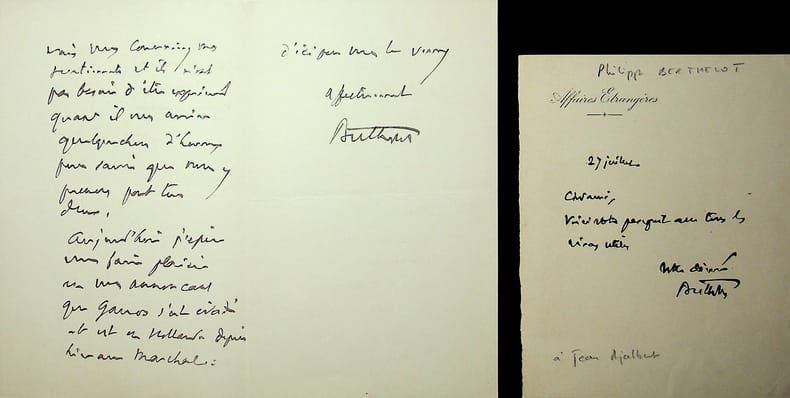 mais vous connaissez mes
sentiments et ils n'ont
pas besoin d'être exprimés
quant il vous arrive
quelque chose d'heureux
pour savoir que nous y
prenons part tous
deux.
Aujourd'hui j'espère
vous faire plaisir
en vous annonçant
que Garros s'est évadé
et est en Hollande depuis
hier avec Marchal :
d'ici peu vous le verrez
affectueusement
Berthelot
Philippe BERTHELOT
Affaires Etrangères
27 juillet
Cher ami,
Voici votre passeport avec tous les
visas utiles
Votre dévoué
Berthelot
à Jean Ajalbert